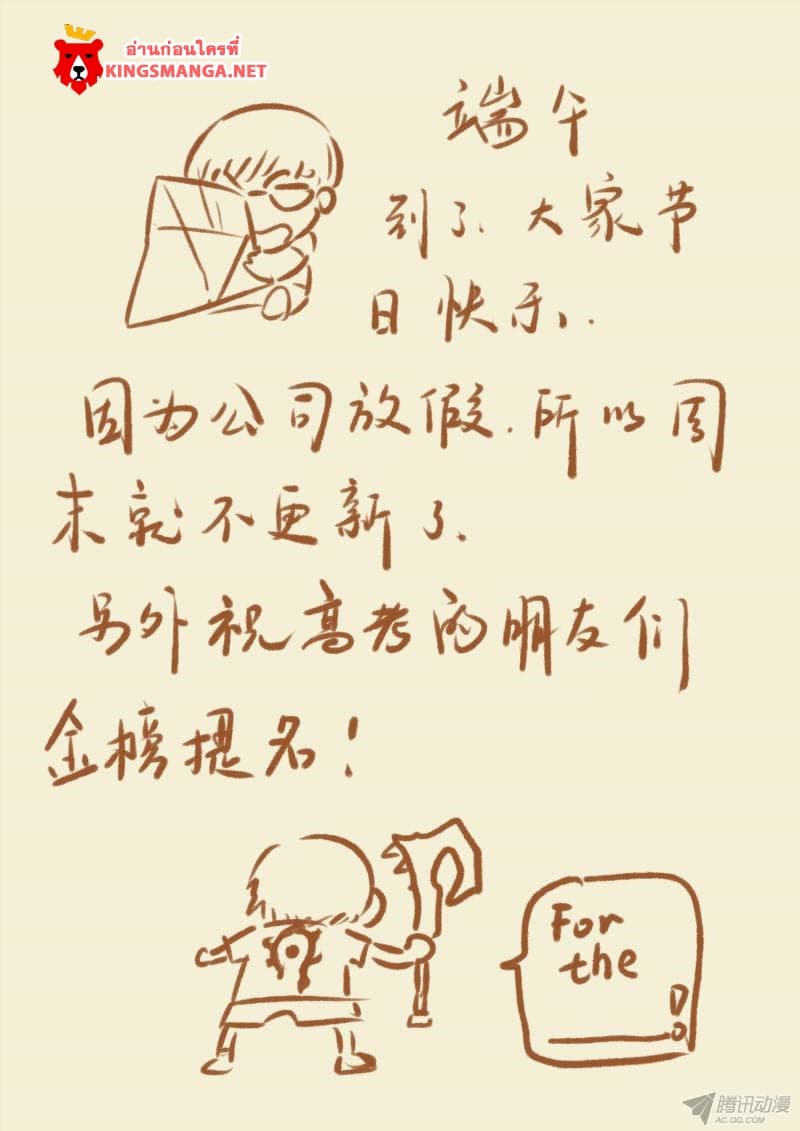 อ่านก่อนใครที่
KINGSMANGA.NET
端午
到了、大家节
日快乐.
因为公司放假.所以周
末就不更新了、
另外祝高考的朋友们
金榜提名!
For
the
腾讯动漫
AC.QQ.COM